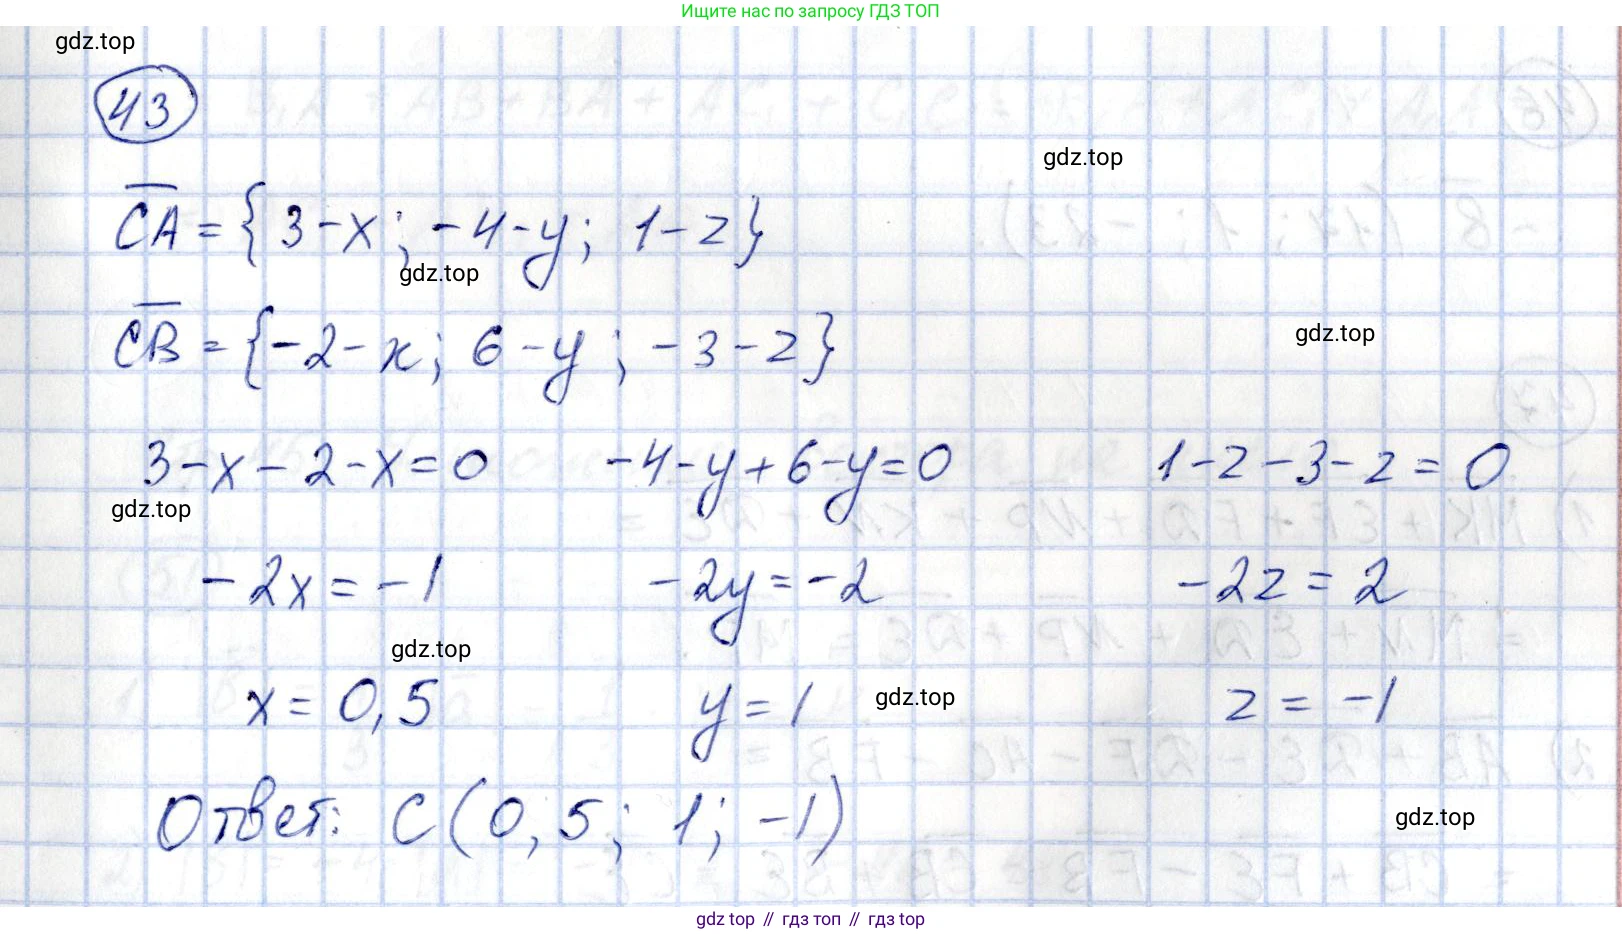 Ищите нас по запросу ГДЗ ТОП
gdz.top
43
gdz.top
CA = {3-x; -4-y; 1-z}
gdz.top
CB = {-2-x; 6-y; -3-z}
gdz.top
3-x-2-x=0 -4-y+6-y=0 1-z-3-z=0
gdz.top
-2x=-1 -2y=-2 -2z=2
gdz.top
x=0,5 y=1 z=-1
gdz.top
Ответ: C(0,5; 1; -1)
gdz.top
gdz.top // гдз топ // гдз top